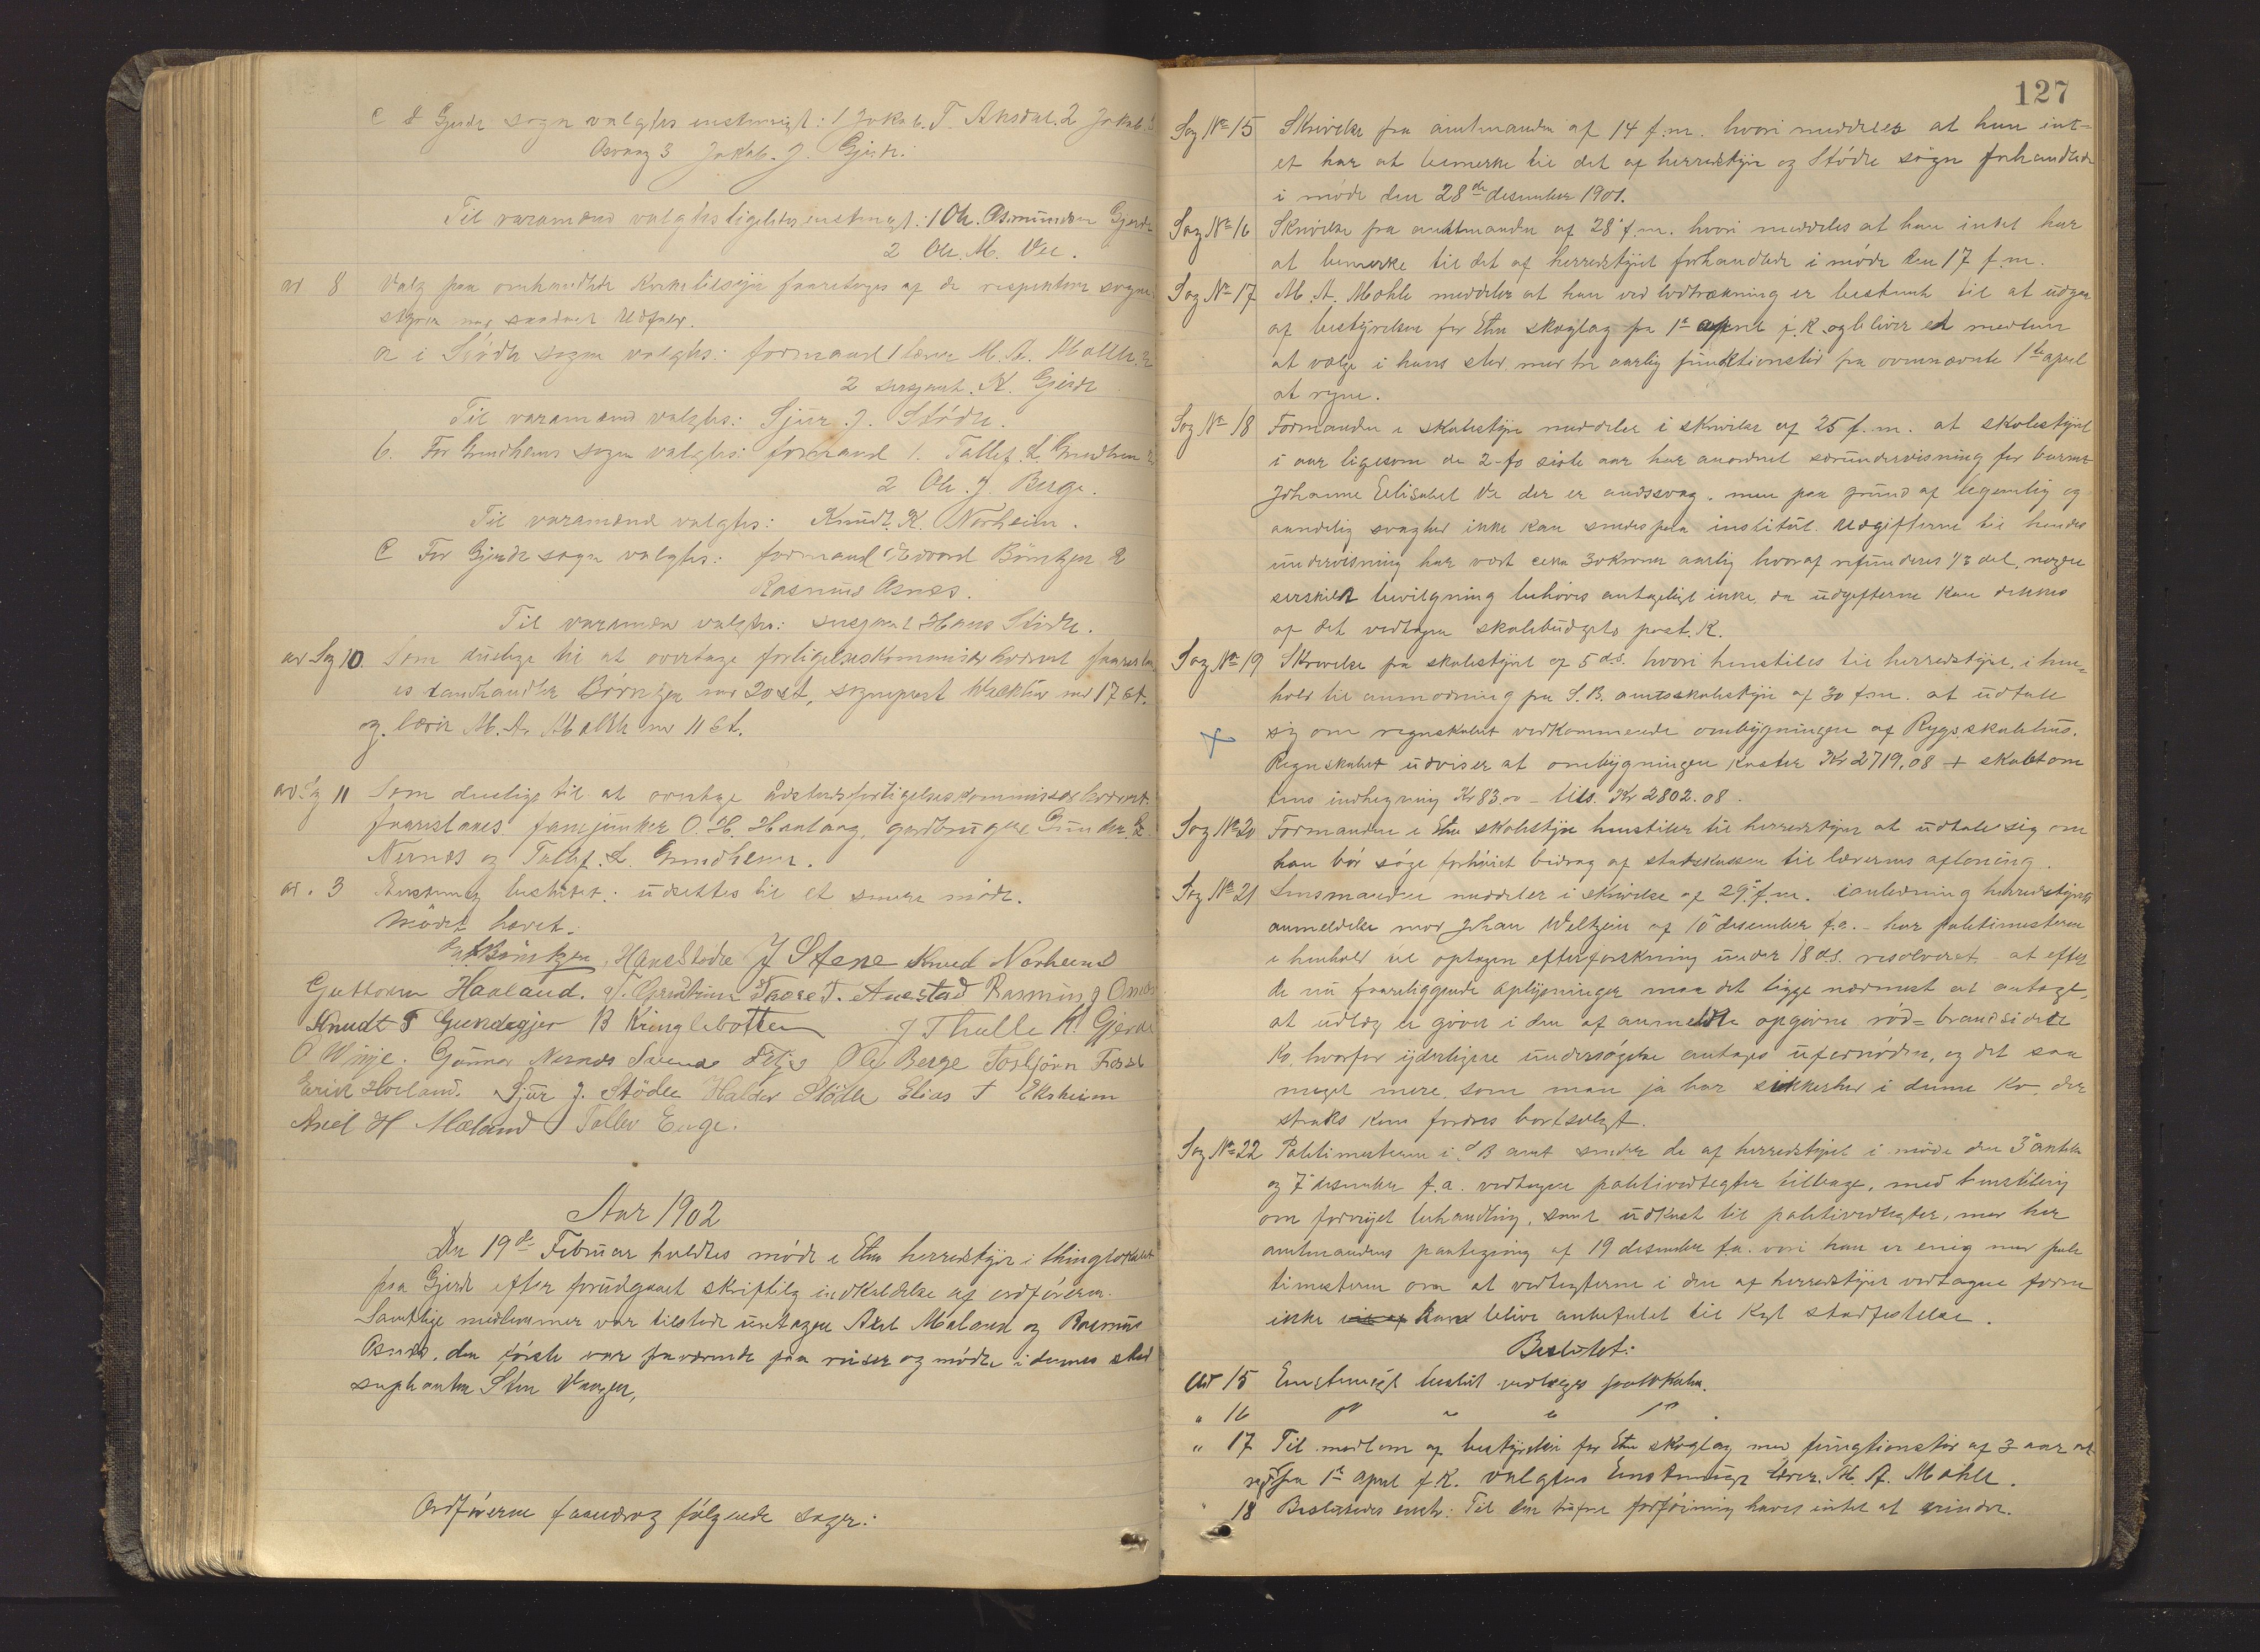 C I Gjerde sogn valgtes enstemigt: 1 Jakob. T. Aksdal. 2 Jakob. J
Osvaag 3 Jakob. J. Gjerde.
Til varamænd valgtes ligeledes enstemigt: 1 Ole. Osmundsen Gjerde
2 Ole. M. Vee.
ad 8 Valg paa omhandlede Kirketilsyn foretoges af de respektive sogne-
styrer med saadant Udfald.
a i Stødle sogn valgtes: formand 1 lærer M. A. Mahle. 2
2 sersjant. K. Gjerde
Til varamænd valgtes: Sjur. J. Stödle.
b. For Grindheims sogn valgtes: formand 1. Tallef. L. Grindheim
2 Ole. J. Berge.
Til varamænd valgtes: Knudt. K. Norheim.
C For Gjerde sogn valgtes: formand Edvard Börntzen 2
Rasmus Osnes.
Til varamænd valgtes: sersjant Hans Stödle.
ad Sag 10. Som duelige til at overtage forligelseskommisær hvervet foreslaa-
es landhandler Börntzen med 20 st, sogneprest med 17 st.
og lærer M. A. Mahle med 11 st.
ad Sag 11 Som duelige til at overtage forligelseskommissær hvervet
foreslaaes fanejunker O. H. Haaland, gardbruger Gunder. G.
Nernes og Tallef. L. Grindheim.
ad. 3 Enstemig besluttet: udsettes til et senere möde.
Mödet hævet.
Ed Börntzen, Hans Stødle J Stene Knud Norheim
Guttorm Haaland. T. Grindheim Taare T. Austad Rasmus J Osnes
Knudt T Gundegjer B Kringlebotten J Thulle K. Gjerde
O Winje. Gunnar Nernæs Svend Fitje Ole Berge Torbjörn Frette
Eerik Hovland. Sjur J. Stödle Haldor Stödle Elias T Ekrheim
Axel H Mæland Tallev Enge.
Aar 1902
Den 19de Februar holdtes möde i Etne herredstyre i thinglokalet
paa Gjerde efter forudgaaet skriftlig indkaldelse af ordföreren.
Samtlige medlemmer var tilstede undtagen Axel Mæland og Rasmus
Osnes, den förste var fraværende paa reiser og mödte i dennes sted
suppleanten Sten Vaagen,
Ordföreren foredrog fölgende sager:
127
Sag No 15 Skrivelse fra amtmanden af 14 f.m. hvori meddeles at han int-
et har at bemerke til det af herredstyre og Stödle sogn forhandlede
i möde den 28de desember 1901.
Sag No 16 Skrivelse fra amtmanden af 28 f.m. hvori meddeles at han intet har
at bemerke til det af herredstyret forhandlede i möde den 17 f.m.
Sag No 17 M. A. Mahle meddeler at han ved lodtrækning er bestemt til at udgaa
af bestyrelsen for Etne skoglag fra 1ste april f.K. og bliver et medlem
at vælge i hans sted med tre aarlig funktionstid fra ovennævnte 1ste april
at regne.
Sag No 18 Formanden i skolestyre meddeler i skrivelse af 25 f.m. at skolestyret
i aar ligesom de 2-to siste aar har anordnet særundervisning for barnet
Johanne Eelisabet Ve der er aandssvag, men paa grund af legemlig og
aandelig svaghed ikke kan sendes paa institut. Udgifterne til hendes
undervisning har vært cirka 30 kroner aarlig hvoraf refunderes 1/3 del, nogen
serskilt bevilgning behöves antageligt ikke, da udgifterne kan dekkes
af det vedtagne skolebudgets post. K.
Sag No 19 Skrivelse fra skolestyret af 5 d.s. hvori henstilles til herredstyret, i hen-
hold til anmodning fra S. B. amtsskolestyre af 30 f.m. at udtale
sig om regnskabet vedkommende ombygningen af Rygs skolehus.
Regnskabet udviser at ombygningen koster Kr 2719,08 + skoletom
tens indhegning Kr 83.00 – tils. Kr 2802.08.
Sag No 20 Formanden i Etne skolestyre henstiller til herredstyre at udtale sig om
han bör söge forhöiet bidrag af statskassen til lærernes aflöning.
Sag No 21 Lensmanden meddeler i skrivelse af 29 f.m. i anledning herredstyrets
anmeldelse mod Johan Weltzien af 10 desember f.a. – har politimesteren
i henhold til optagen efterforskning under 18 d.s. resolveret at efter
de nu foreliggende oplysninger maa det ligge nærmest at antage,
at udlæg er given i den af anmeldte opgivne röd-brandsidede
Ko, hvorfor yderligere undersögelse antages ufornöden, og det saa
meget mere, som man jo har sikkerhed i denne Ko, der
straks kan fordres bortsolgt.
Sag No 22 Politimesteren i S B amt sender de af herredstyret i möde den 3 oktober
og 7 desember f.a. vedtagne politivedtegter tilbage, med henstilling
om fornyet behandling, samt udkast til politivedtegter, med her
amtmandens paategning af 19 desember f.a. vori han er enig med poli
timesteren om at vedtegterne i den af herredstyret vedtagne form
ikke kand blive anbefalet til Kgl stadfestelse.
Beslutet:
Ad 15 Enstemigt beslut vedlægges protokolen.
" 16 " " " "
" 17 Til medlem af bestyrelsen for Etne skoglag med fungtionstid af 3 aar at
regne fra 1ste april f.K. valgtes Enstemigt lærer. M. A. Mahle.
" 18 Besluttedes enst: Til den trufne forföining haves intet at erindre.